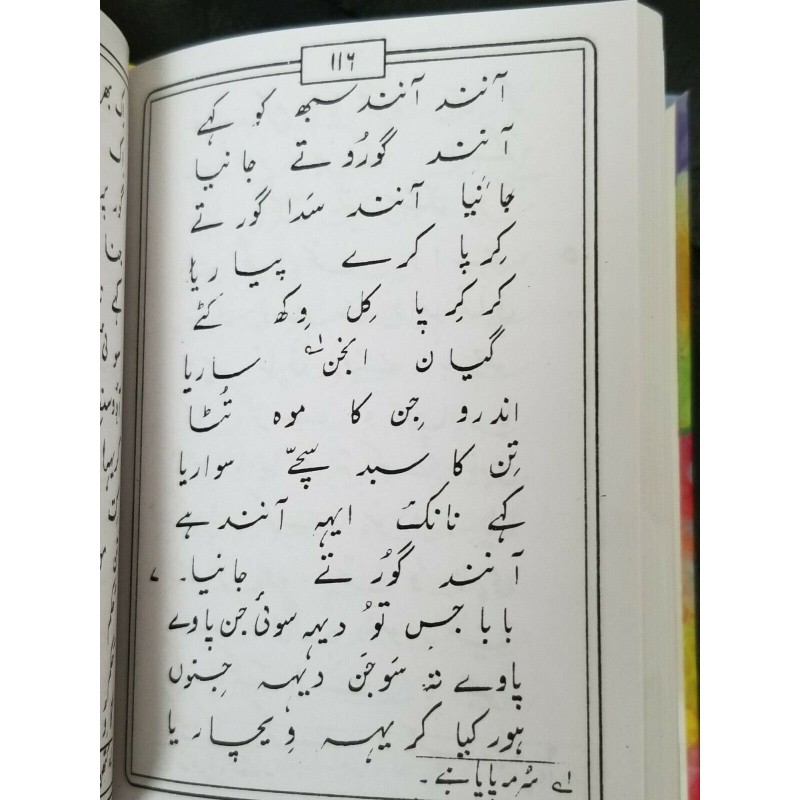 ۱۱۶
آنند آنند سبھ کو کہے
آنند گورُو تے جانیا
جانیا آنند سَدا گور تے
کِرپا کرے پیاریا
کر کِرپا کِل وِکھ کٹے
گیان انجن ؂۱ ساریا
اندرو جِن کا موہ تُٹا
تِن کا سبد سچّے سواریا
کہے نانک ایہہ آنند ہے
آنند گورُ تے جانیا۔ ۷
بابا جِس توُ دیہہ سوئی جن پاوے
پاوے تہ سَو جَن دیہہ جِنوں
ہور کیا کر یہہ وِیچاریا